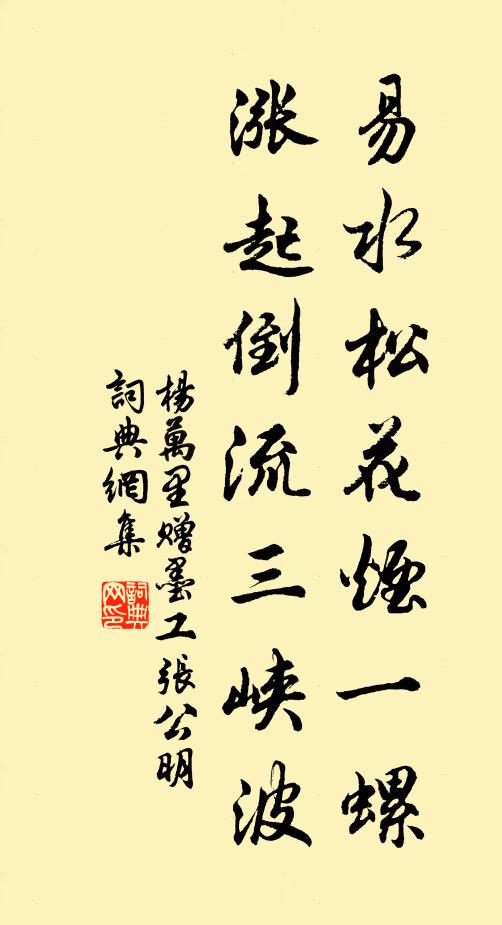 易水松花煙一螺
漲起倒流三峽波
楊萬里贈墨工張公明
詞典網集
詞典网印